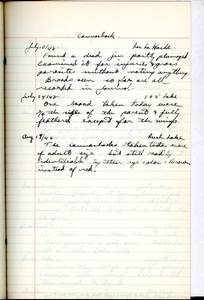 Canvasback
July 10/42
Found a dead jv. partly plumaged
examined it for injuries & gross
parasites without noting anything
Broods seen so far are all
recorded in journal.
July 29/42 Lake
One brood taken today were
the size of the parent & fully
feathered except for the wings.
Aug 19/42 Rush Lake
The canvasbacks taken today were
of adult size but still readily
identifiable by their eye color - brown
instead of red.